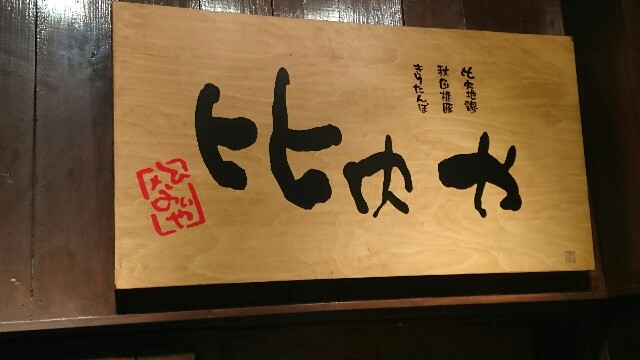 比内や
比内地鶏
秋田桃豚
きりたんぽ
ひないや